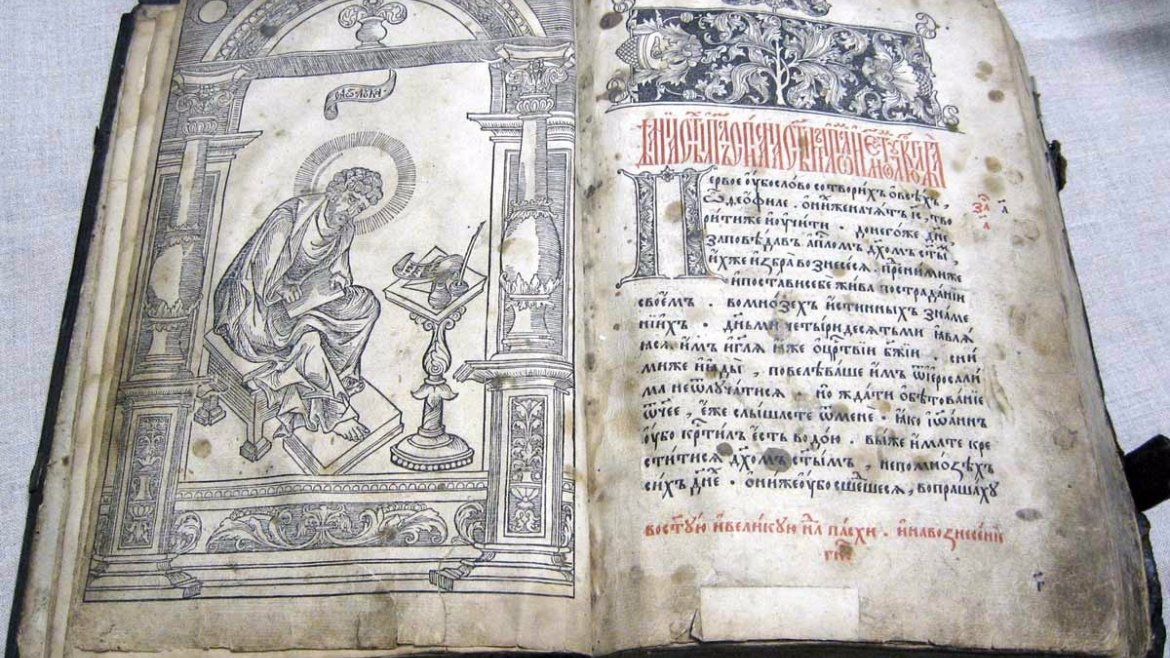 Первое ѹбо слово сотворихъ ѡвсѣхъ,
ѽ деофиле . ѡниже начатъ іс, тво
рити же иѹчити . донегоже дне,
заповѣдавъ апⷭ҇лом дх҃омъ ст҃ы
ихже избра вознесеся . пренимиже
ипостави себе жива пострадании
своемъ . вомнозѣхъ истинныхъ знаме
нїихъ . дньми четыридесятьми ꙗвлѧ
ѧсѧ имъ игл҃ѧ иже ѡцр҃твїи бж҃їи . сни
миже иꙗды , повелѣваше имъ ѿїерѡсали
ма неѿлучатисѧ . но ждати ѡбѣтованїе
ѿчее , еже слышасте ѿмене . ꙗко іѡаннъ
ѹбо крⷭ҇тилъ есть водою . выже имате кре
ститисѧ дх҃омъ ст҃ымъ , непомнозѣхъ
сихъ дне . ѡниже ѹбо сшешесѧ , вопрашахѹ
востую ивеликую нлⷧ пасхи . инавознесенїе
гн҃е